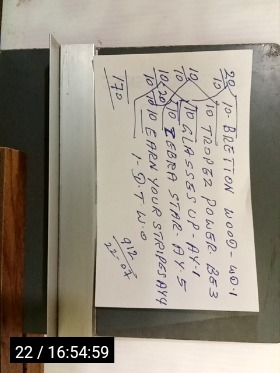 20/10 10. BRETTON WOOD - WD.1
10 10 TROPEZ POWER BE3
10 10 GLASSES UP - AY.1
10/20 10 ZEBRA STAR. AY.5
10 10 EARN YOUR STRIPES AY4
170
1- D.T W.O
22 / 16:54:59